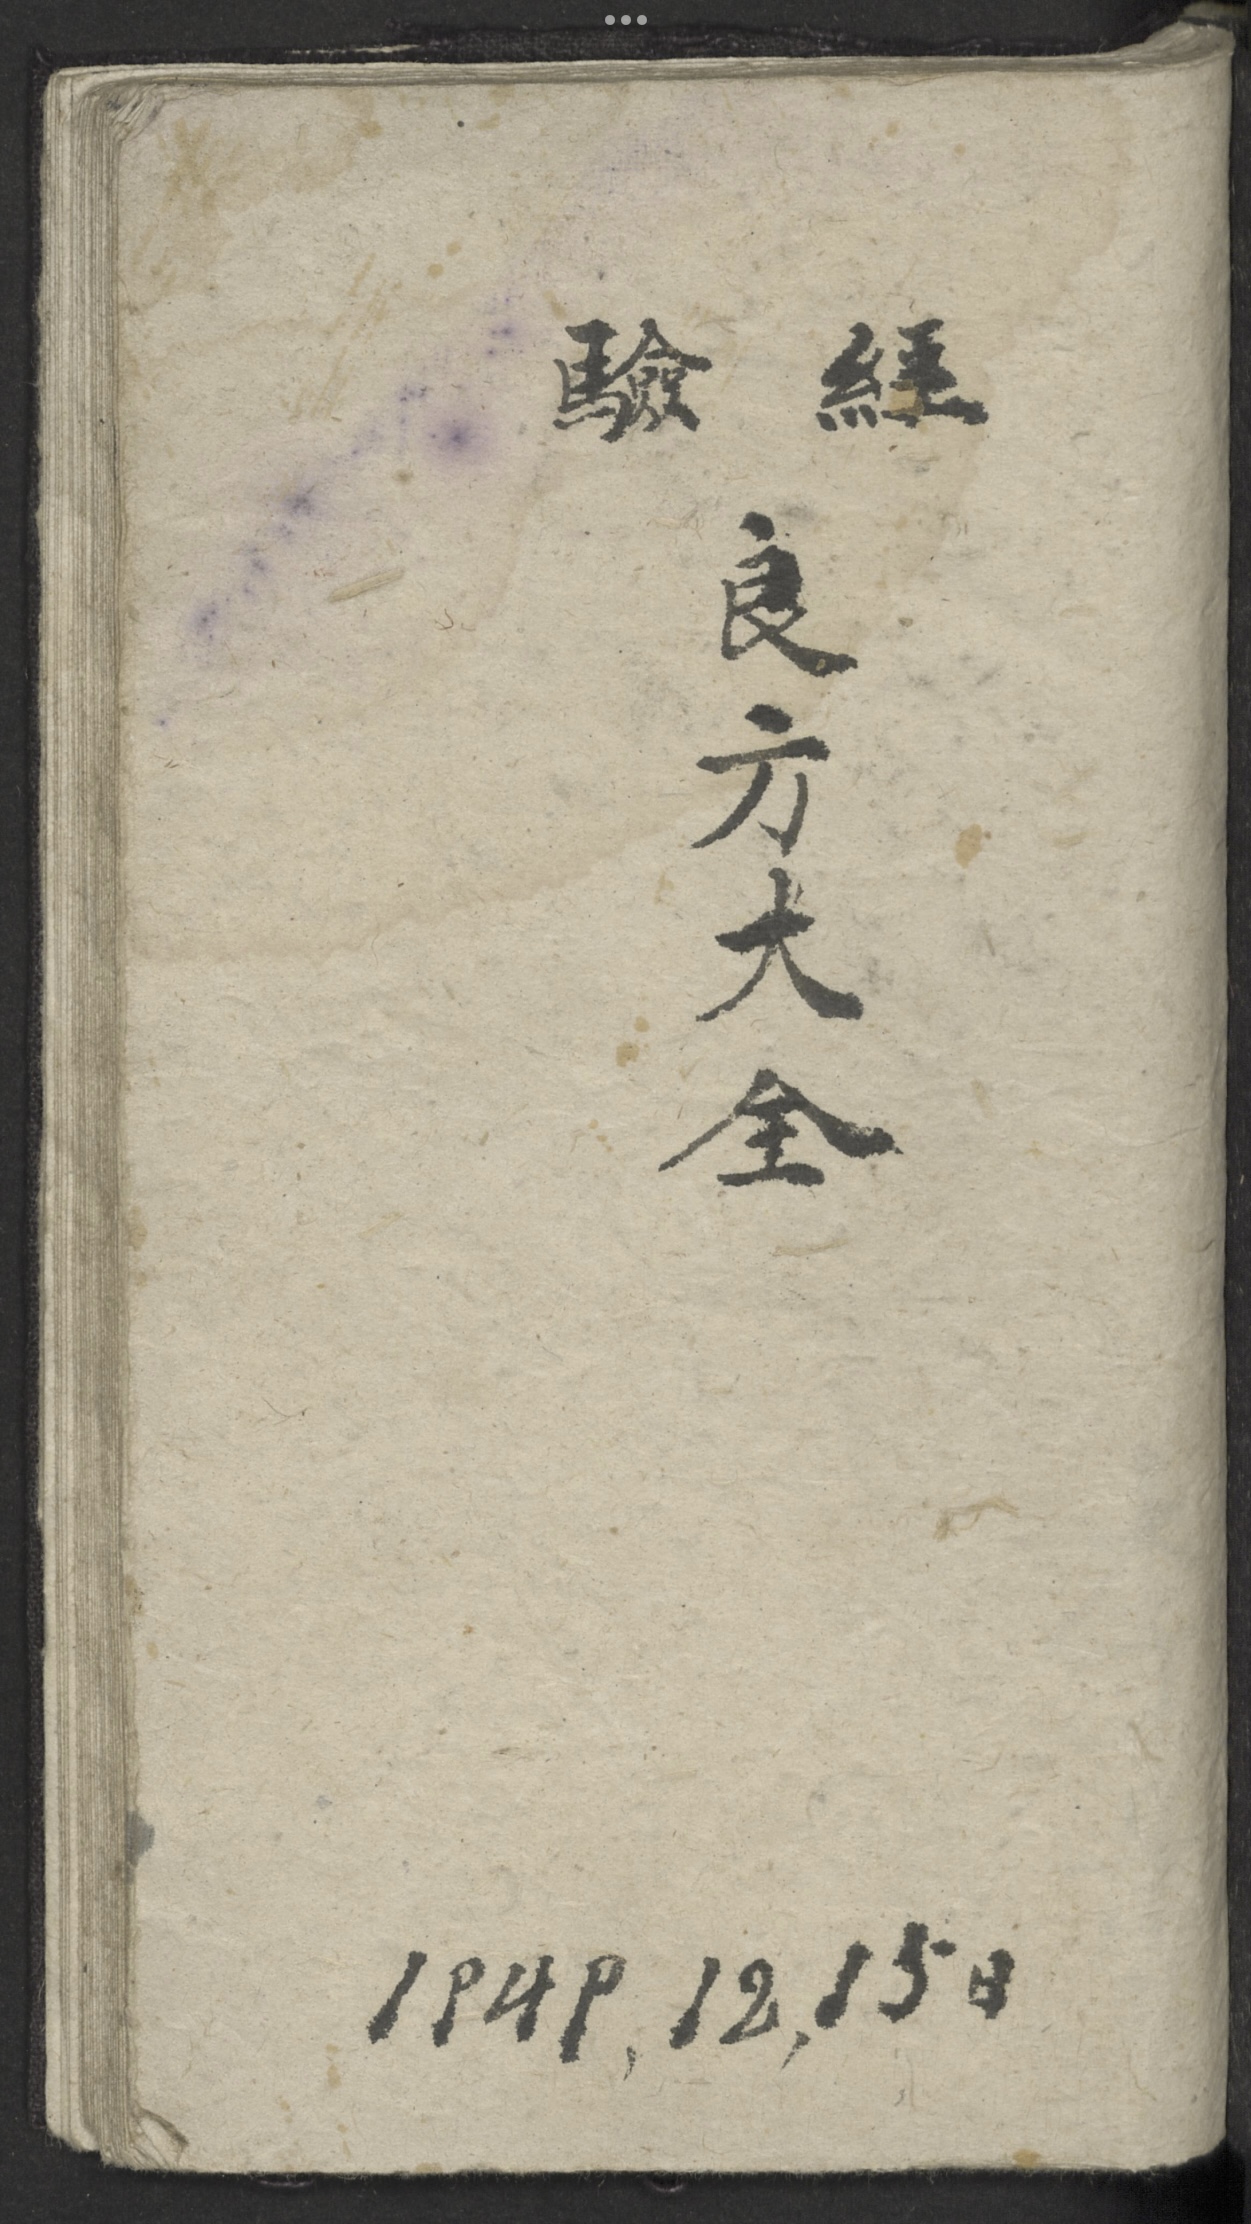 經驗
良方大全
1949,12,15日